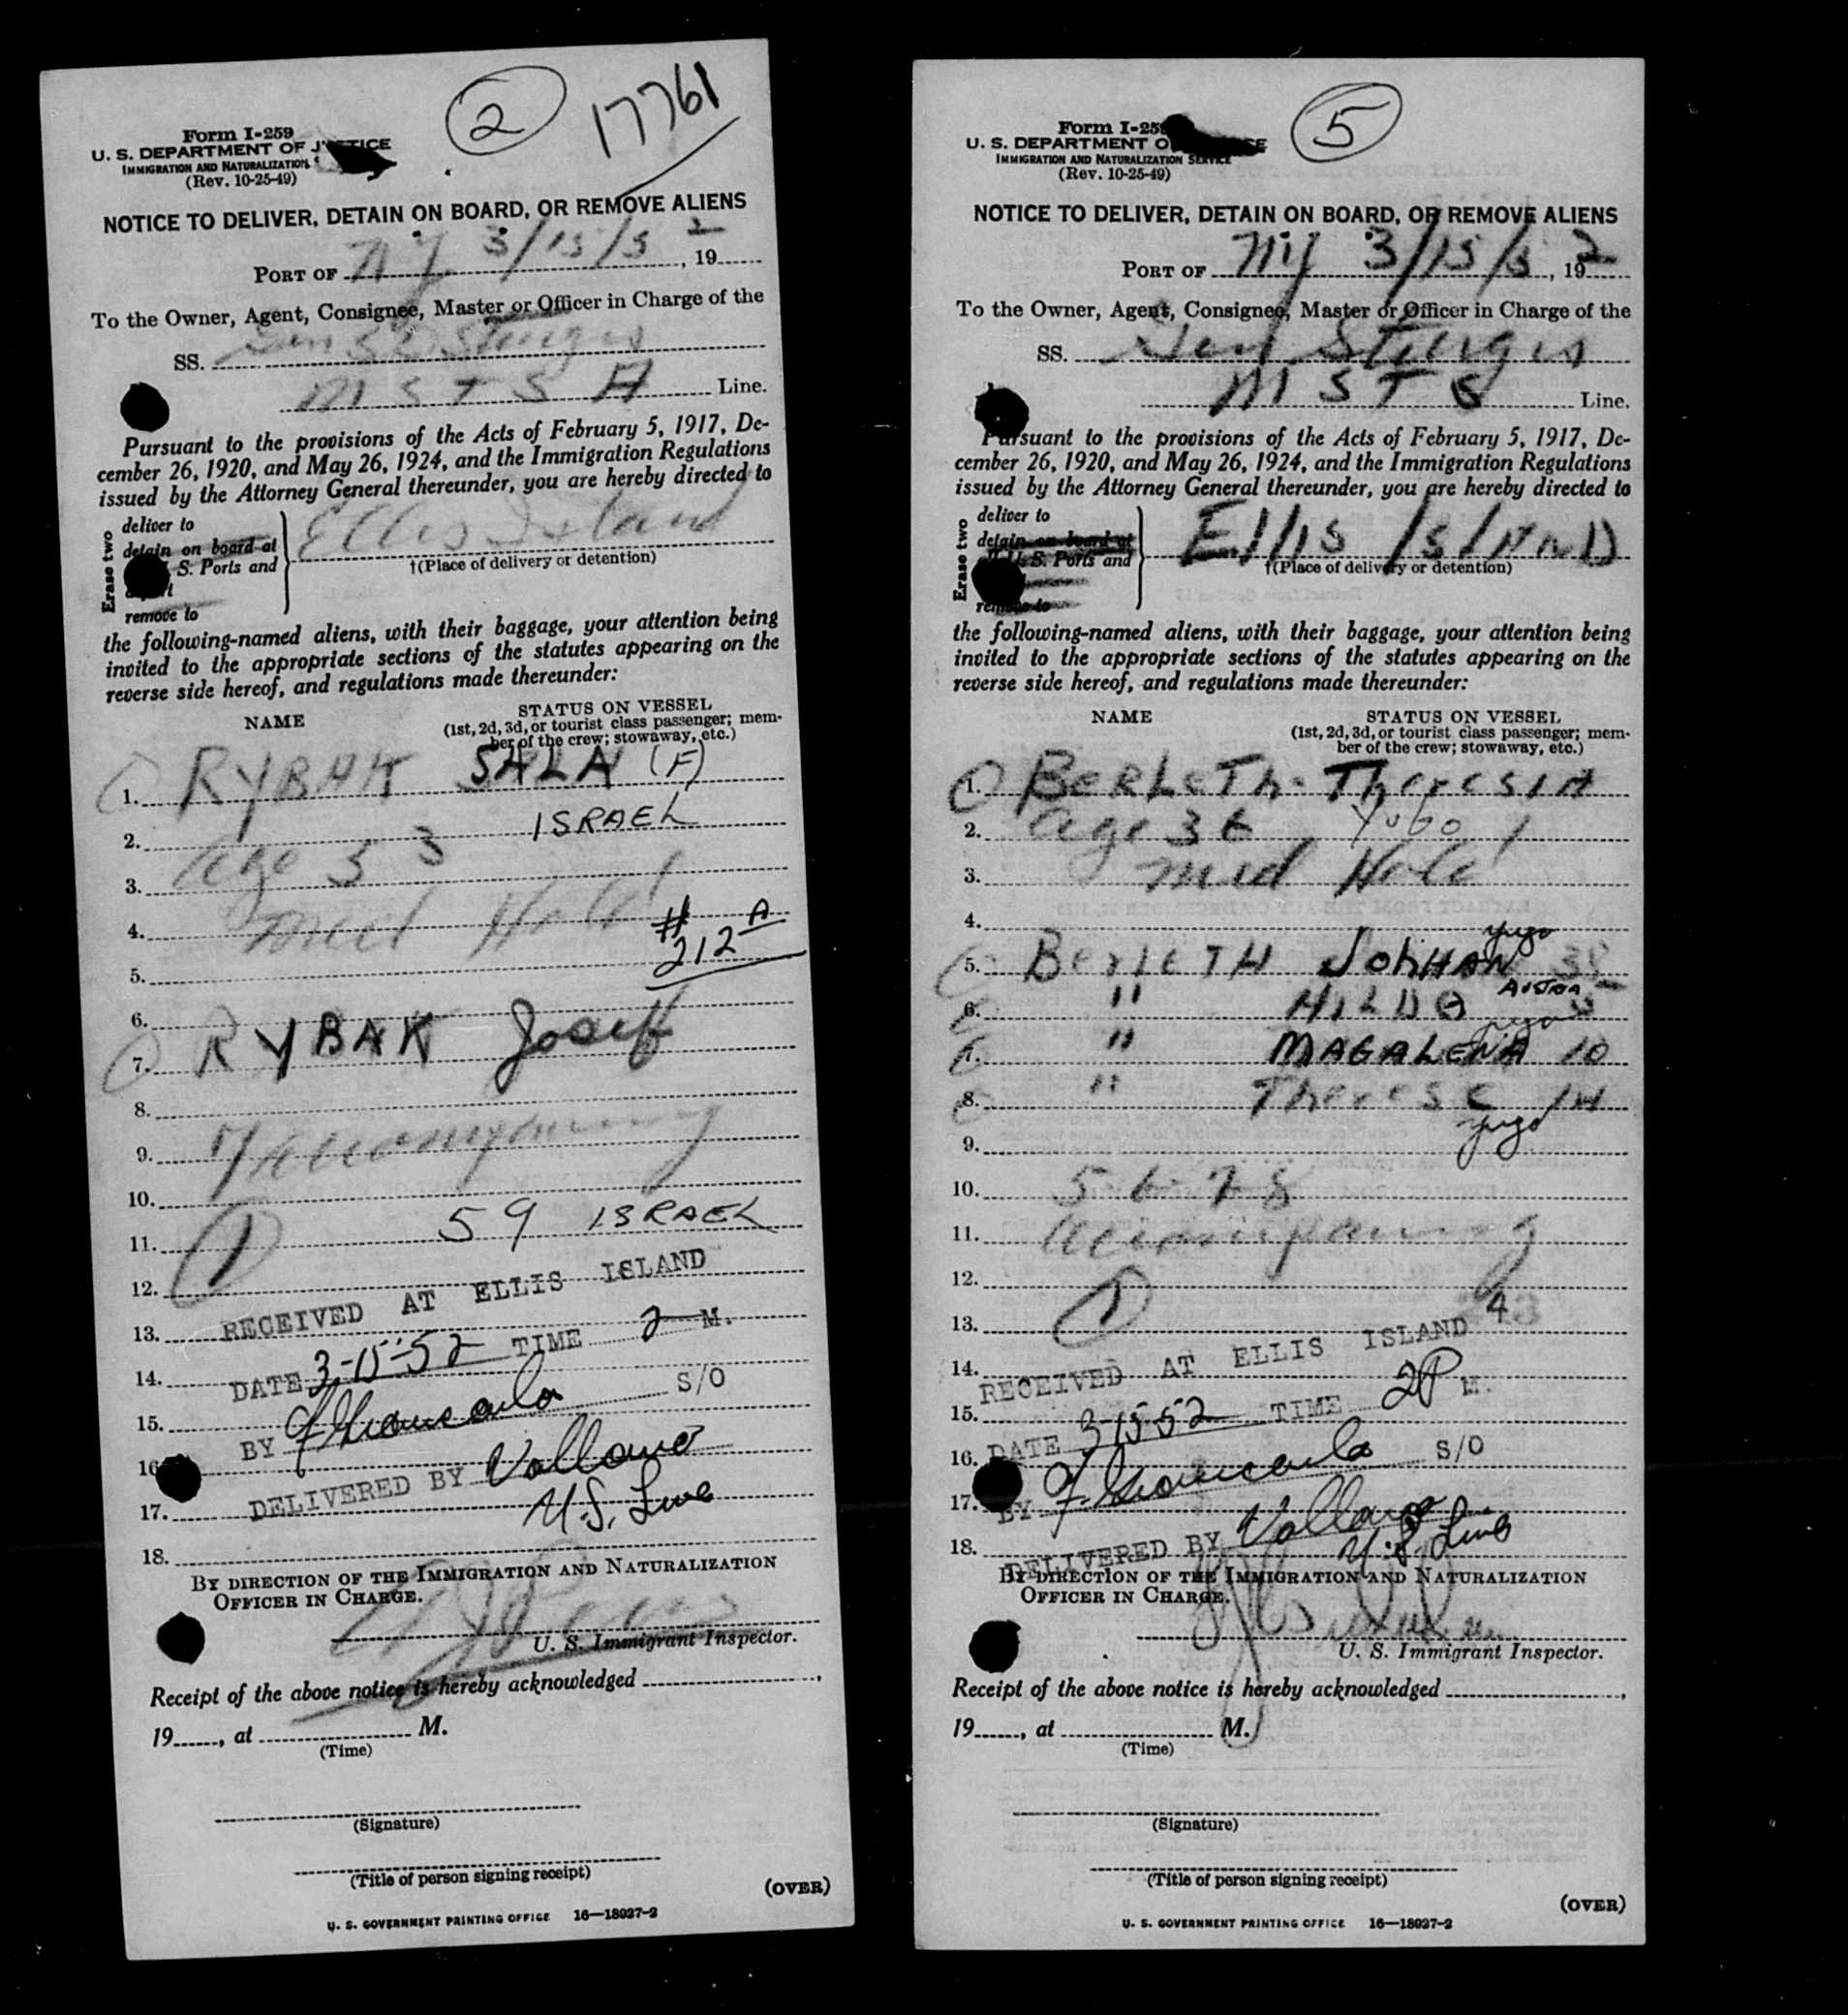 2
17761
Form I-259
U. S. DEPARTMENT OF JUSTICE
IMMIGRATION AND NATURALIZATION
(Rev. 10-25-49)
NOTICE TO DELIVER, DETAIN ON BOARD, OR REMOVE ALIENS
PORT OF NY 3/15/52, 19
To the Owner, Agent, Consignee, Master or Officer in Charge of the
SS. Gen SD Sturgis
MSTS Line.
Pursuant to the provisions of the Acts of February 5, 1917, De-
cember 26, 1920, and May 26, 1924, and the Immigration Regulations
issued by the Attorney General thereunder, you are hereby directed to
Erase two
deliver to
detain on board at
S. Ports and
remove to
Ellis Island
†(Place of delivery or detention)
the following-named aliens, with their baggage, your attention being
invited to the appropriate sections of the statutes appearing on the
reverse side hereof, and regulations made thereunder:
NAME STATUS ON VESSEL
(1st, 2d, 3d, or tourist class passenger; mem-
ber of the crew; stowaway, etc.)
1. RYBAK SALA (F)
2. ISRAEL
3. Age 53
4. med Hold
# 212 A
5.
6.
7. RYBAK Josef
8.
9. accompanying
10.
11. 59 ISRAEL
1
12.
13. RECEIVED AT ELLIS ISLAND
14. DATE 3-15-52 TIME 2 M.
15. BY F Giancarlo S/O
16. DELIVERED BY Vallone
17. U.S. Line
18.
BY DIRECTION OF THE IMMIGRATION AND NATURALIZATION
OFFICER IN CHARGE.
U. S. Immigrant Inspector.
Receipt of the above notice is hereby acknowledged ,
19 , at M.
(Time)
(Signature)
(Title of person signing receipt)
(OVER)
U. S. GOVERNMENT PRINTING OFFICE 16—18927-2
5
Form I-259
U. S. DEPARTMENT O
IMMIGRATION AND NATURALIZATION SERVICE
(Rev. 10-25-49)
NOTICE TO DELIVER, DETAIN ON BOARD, OR REMOVE ALIENS
PORT OF NY 3/15/5, 192
To the Owner, Agent, Consignee, Master or Officer in Charge of the
SS. Gen Sturgis
MSTS Line.
Pursuant to the provisions of the Acts of February 5, 1917, De-
cember 26, 1920, and May 26, 1924, and the Immigration Regulations
issued by the Attorney General thereunder, you are hereby directed to
Erase two
deliver to
detain on board at
U. S. Ports and
remove to
Ellis IslAND
†(Place of delivery or detention)
the following-named aliens, with their baggage, your attention being
invited to the appropriate sections of the statutes appearing on the
reverse side hereof, and regulations made thereunder:
NAME STATUS ON VESSEL
(1st, 2d, 3d, or tourist class passenger; mem-
ber of the crew; stowaway, etc.)
1. BERLETH - THERESIA
2. age 36 Yugo 1
3. med Hold
4. yugo
5. BerleTH JOHHAN 38
Austra
6. " HILDA 5
yugo
7. " MAGALENA 10
8. " Therese 14
9. yugo
10. 5-6-7-8
11. accompanying
12.
13. 1 4
RECEIVED AT ELLIS ISLAND
14.
15. DATE 3-15-52 TIME 2P M.
16. BY F. Giancarlo S/O
17. DELIVERED BY Vallone
18. U.S. Line
BY DIRECTION OF THE IMMIGRATION AND NATURALIZATION
OFFICER IN CHARGE.
U. S. Immigrant Inspector.
Receipt of the above notice is hereby acknowledged ,
19 , at M.
(Time)
(Signature)
(Title of person signing receipt)
(OVER)
U. S. GOVERNMENT PRINTING OFFICE 16—18927-2